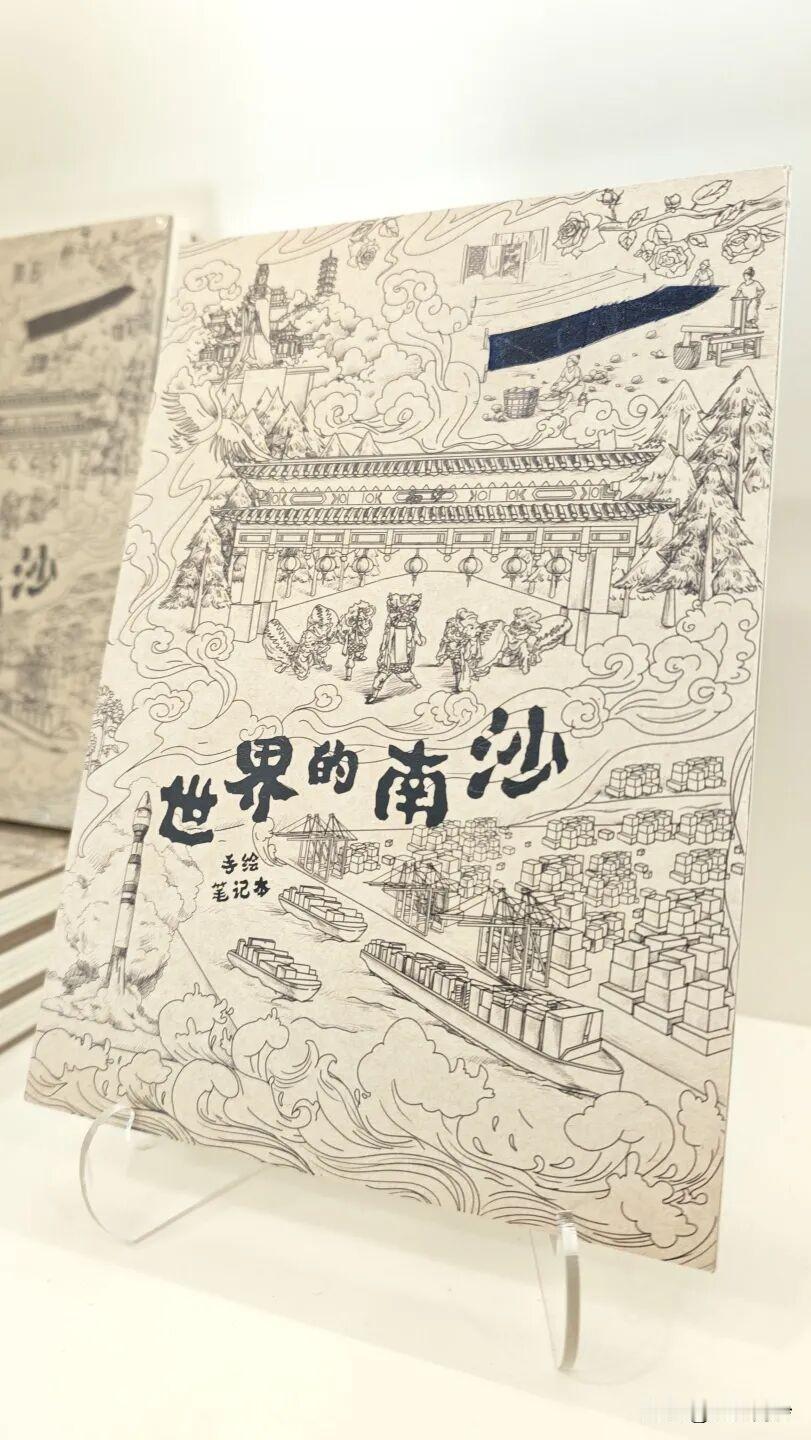 世界的南沙
手绘
笔记本
沙